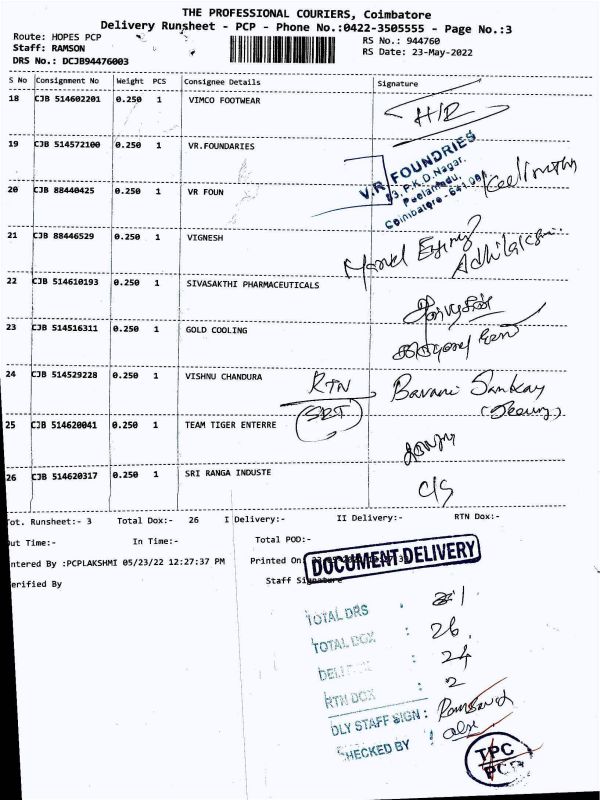 THE PROFESSIONAL COURIERS, Coimbatore
Delivery Runsheet - PCP - Phone No.:0422-3505555 - Page No.:3
Route: HOPES PCP RS No.: 944760
Staff: RAMSON RS Date: 23-May-2022
DRS No.: DCJB94476003
S No Consignment No Weight PCS Consignee Details Signature
18 CJB 514602201 0.250 1 VIMCO FOOTWEAR H/R
19 CJB 514572100 0.250 1 VR.FOUNDARIES
V.R. FOUNDRIES
53, P.K.D.Nagar,
Peelamedu,
Coimbatore - 641 004
20 CJB 88440425 0.250 1 VR FOUN
21 CJB 88446529 0.250 1 VIGNESH
22 CJB 514610193 0.250 1 SIVASAKTHI PHARMACEUTICALS
23 CJB 514516311 0.250 1 GOLD COOLING
24 CJB 514529228 0.250 1 VISHNU CHANDURA RTN Bavani Sankay
25 CJB 514620041 0.250 1 TEAM TIGER ENTERRE
26 CJB 514620317 0.250 1 SRI RANGA INDUSTE C/S
Tot. Runsheet:- 3 Total Dox:- 26 I Delivery:- II Delivery:- RTN Dox:-
Out Time:- In Time:- Total POD:-
ntered By :PCPLAKSHMI 05/23/22 12:27:37 PM Printed On:
DOCUMENT DELIVERY
erified By Staff Signature
TOTAL DRS : 1
TOTAL DOX : 26
DELI : 24
RTN DOX : 2
DLY STAFF SIGN :
CHECKED BY :
TPC
PCP